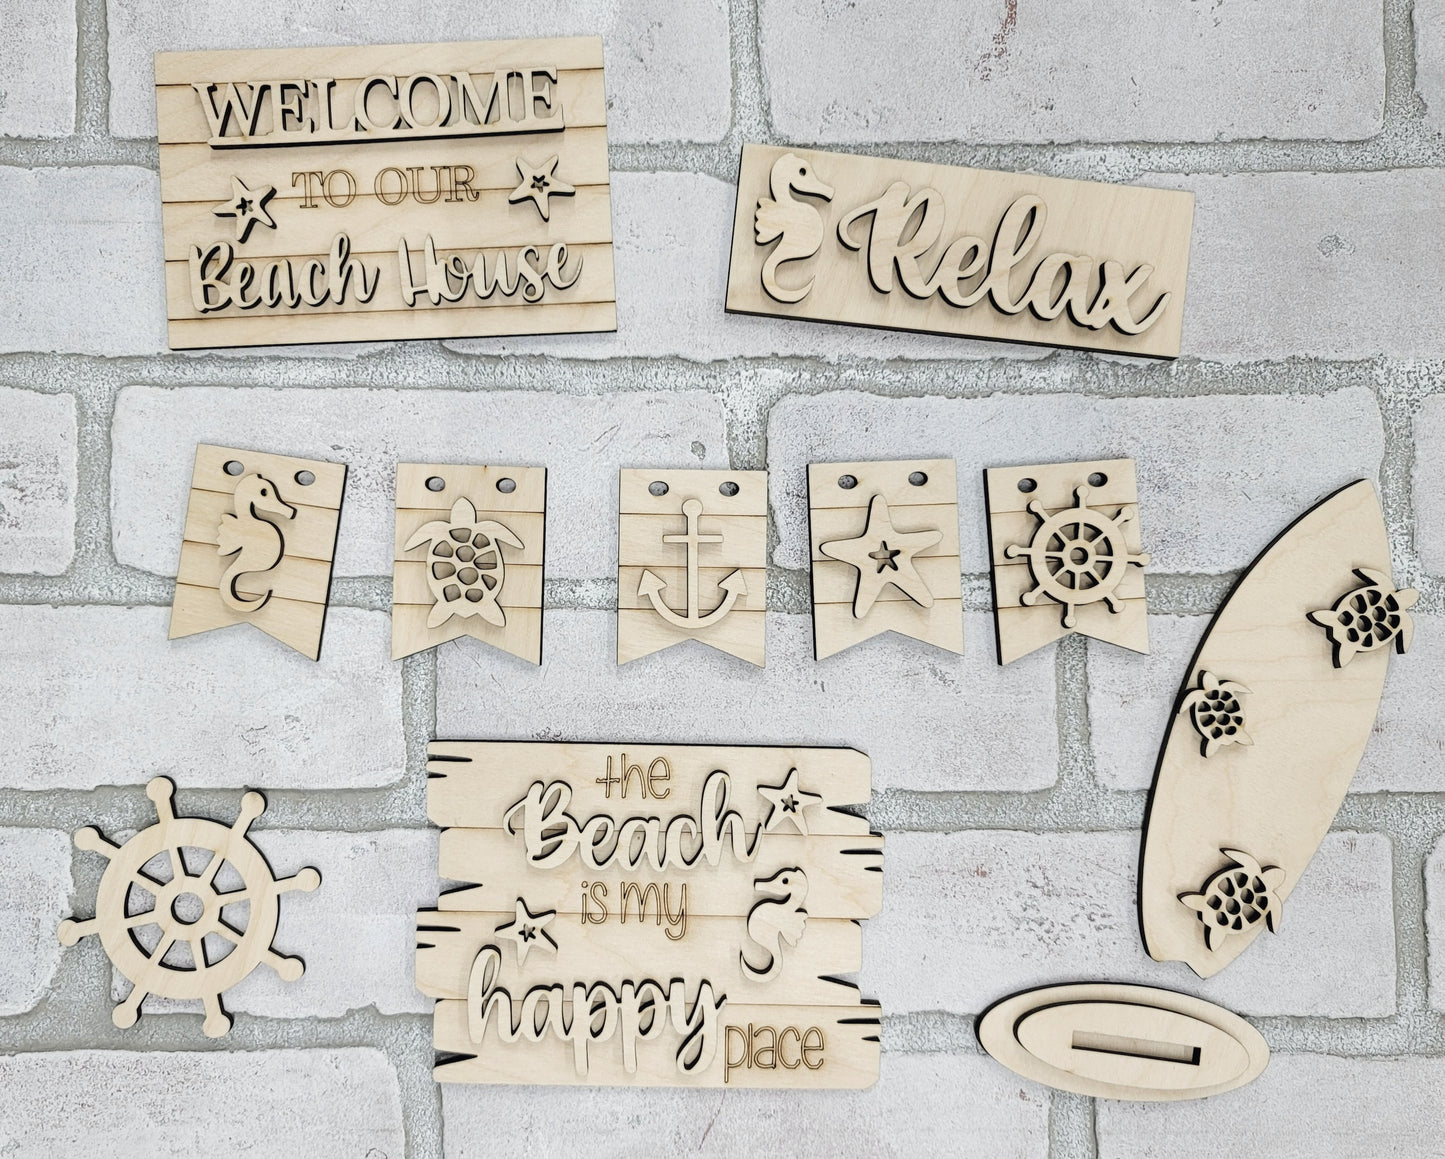 WELCOME
TO OUR
Beach House
Relax
the
Beach
is my
happy
place